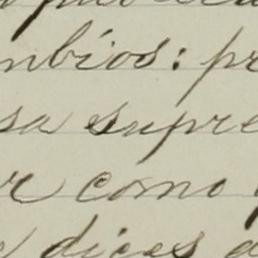 mbios: pr
sa supre
r como
dices a